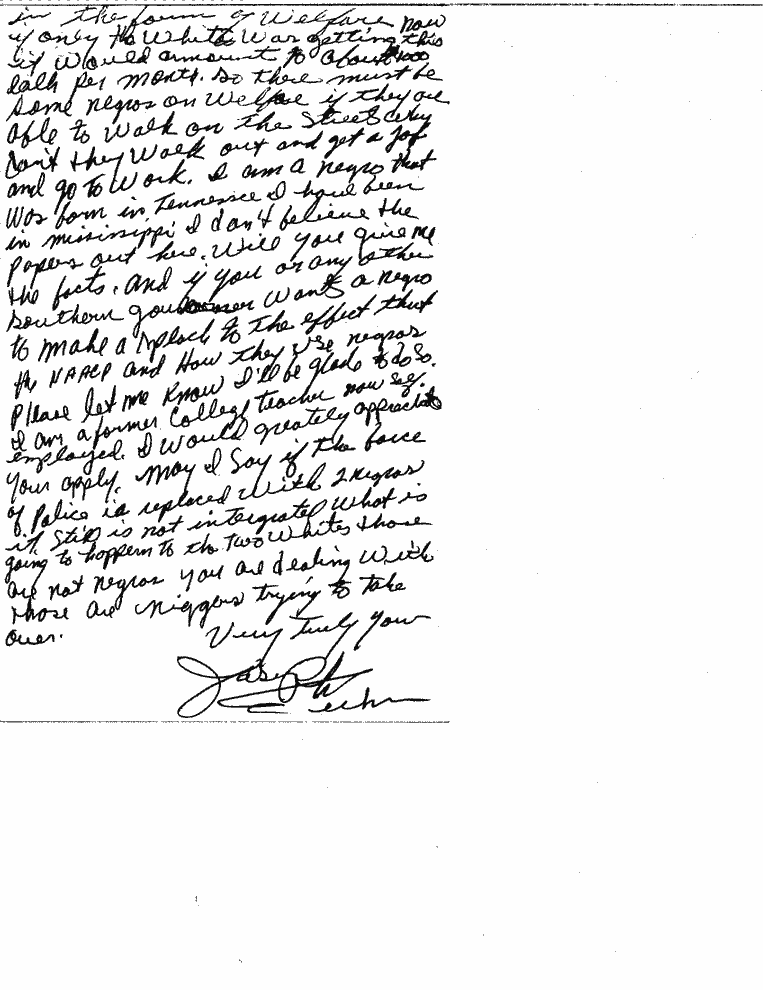 in the form of Welfare now
if only the White Was getting this
it Would amount to about 1000
each per month. So there must be
Some negros on Welfare if they are
able to Walk on the Streets Why
Don't they Walk out and get a Job
and go to Work. I am a negro that
Was born in Tennessee I have been
in mississippi I don't believe the
papers out here. Will you give me
the facts. And if you or any other
Southern Want a negro
to make a to the effect that
the NAACP and How they use negros
Please let me Know I'll be glade to do So.
I am a former College teacher now Self
employed. I Would greately
Your apply. May I Say if the force
of Police is replaced With 2 Negros
it Still is not intergrated What is
going to happen to the Two Whites those
are not negros you are dealing With
those are niggers trying to take
over.
Very truly your
Joseph